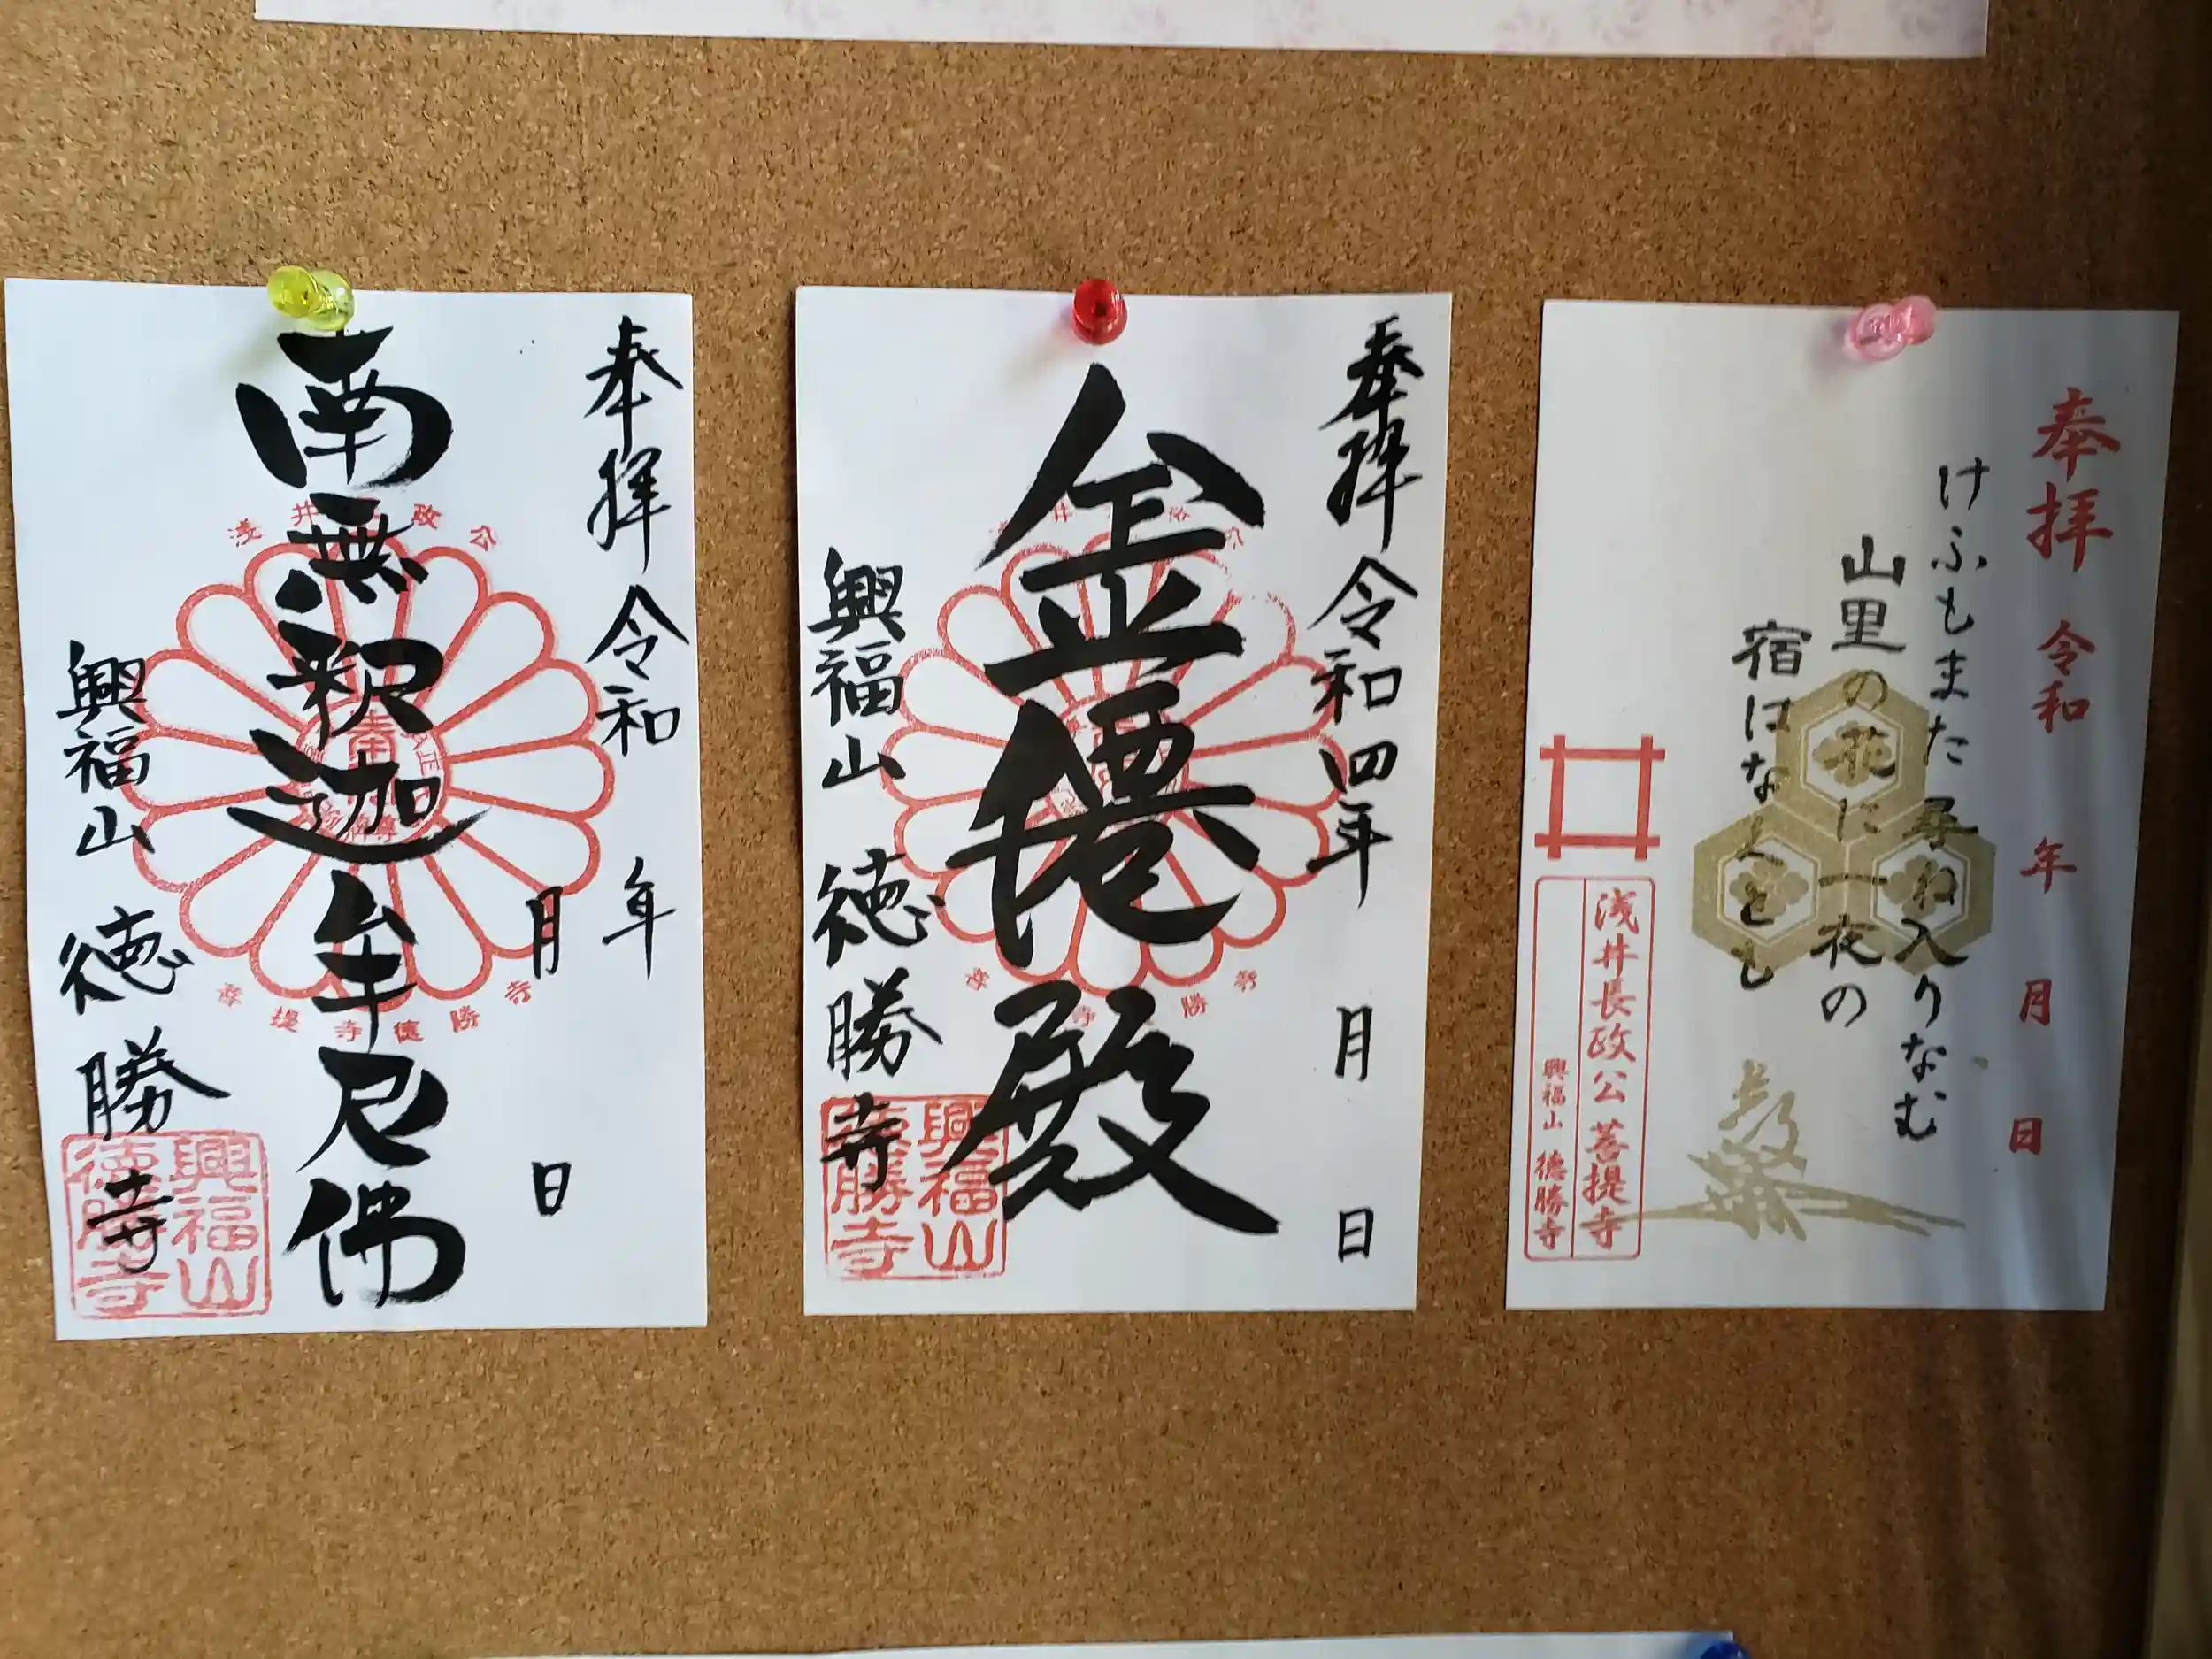 奉拝 令和 年
月 日
南無釈迦牟尼佛
興福山 徳勝寺
浅井 政公
菩提寺徳勝寺
興福山
徳勝寺
奉拝 令和四年 月 日
興福山 徳勝寺
興福山
徳勝寺
奉拝 令和 年 月 日
けふもまた尋ね入りなむ
山里の花に一夜の
宿はなくとも
浅井長政公 菩提寺
興福山 徳勝寺